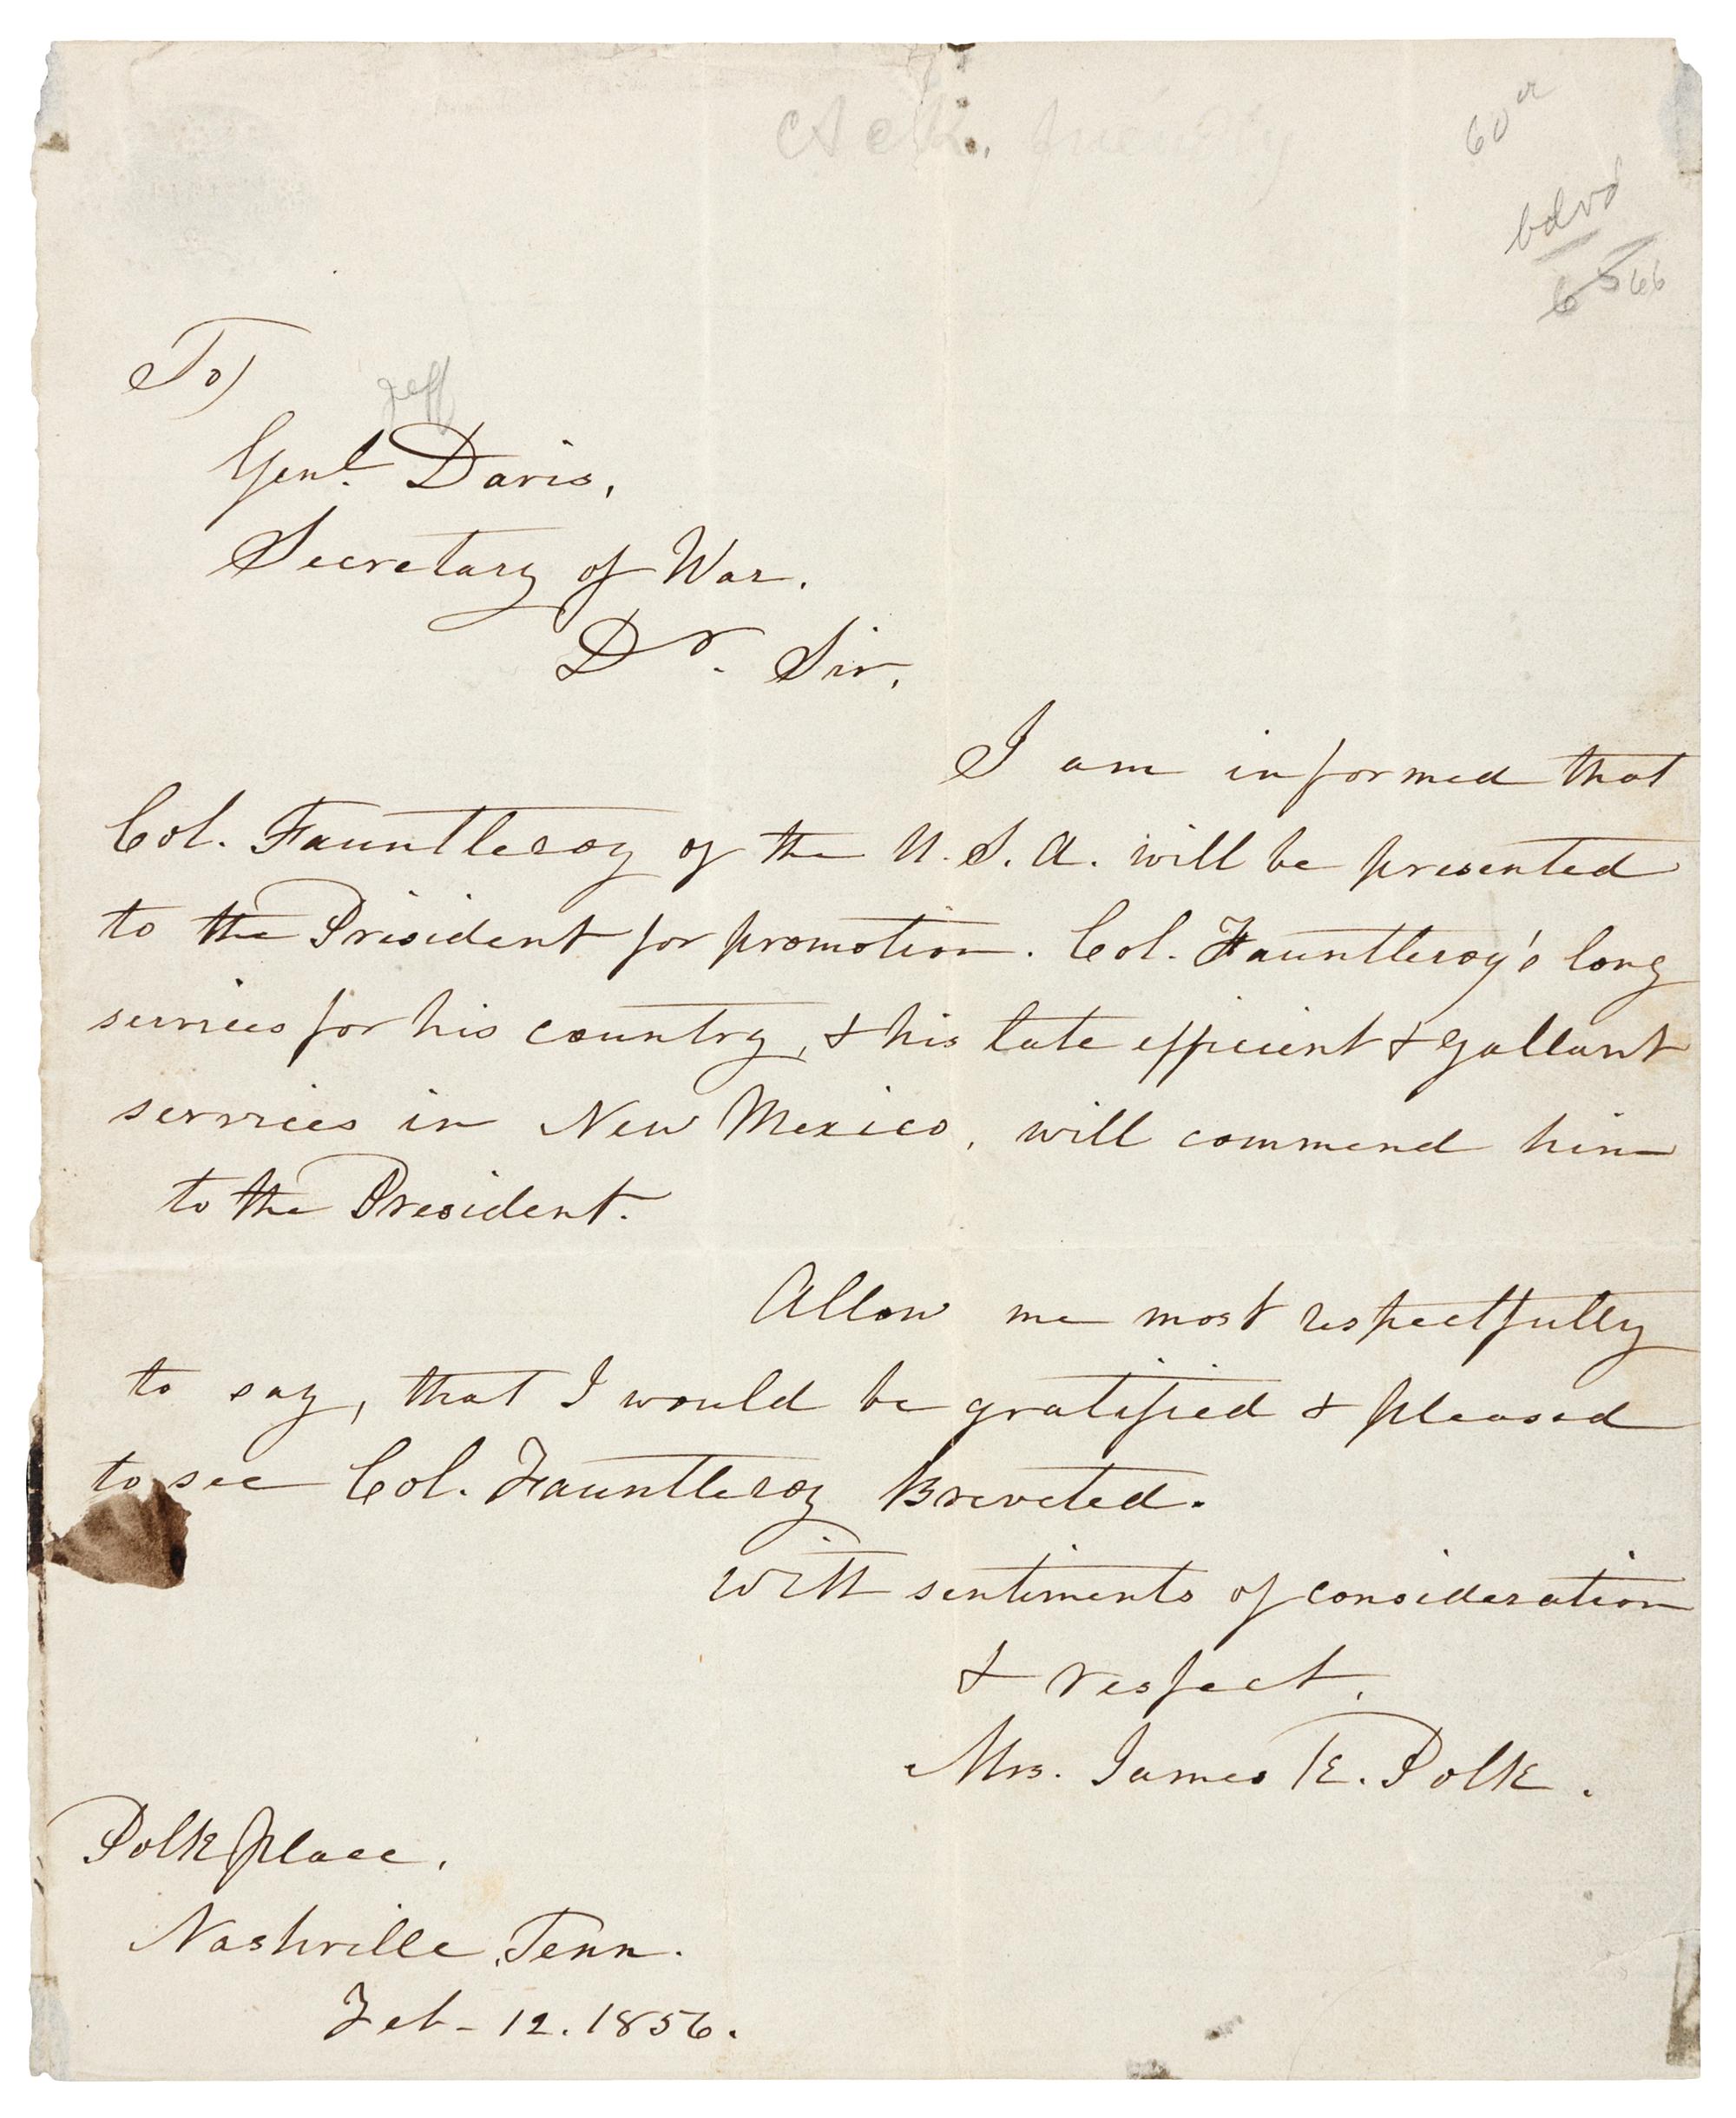 60
bdvd
566
To)
Jeff
Genl. Davis,
Secretary of War.
Dr. Sir,
I am informed that
Col. Fauntleroy of the U.S.A. will be presented
to the President for promotion. Col. Fauntleroy's long
services for his country, & his late efficient & gallant
services in New Mexico, will commend him
to the President.
Allow me most respectfully
to say, that I would be gratified & pleased
to see Col. Fauntleroy Breveted.
With sentiments of consideration
& respect,
Mrs. James K. Polk.
Polk Place,
Nashville, Tenn.
Feb - 12. 1856.